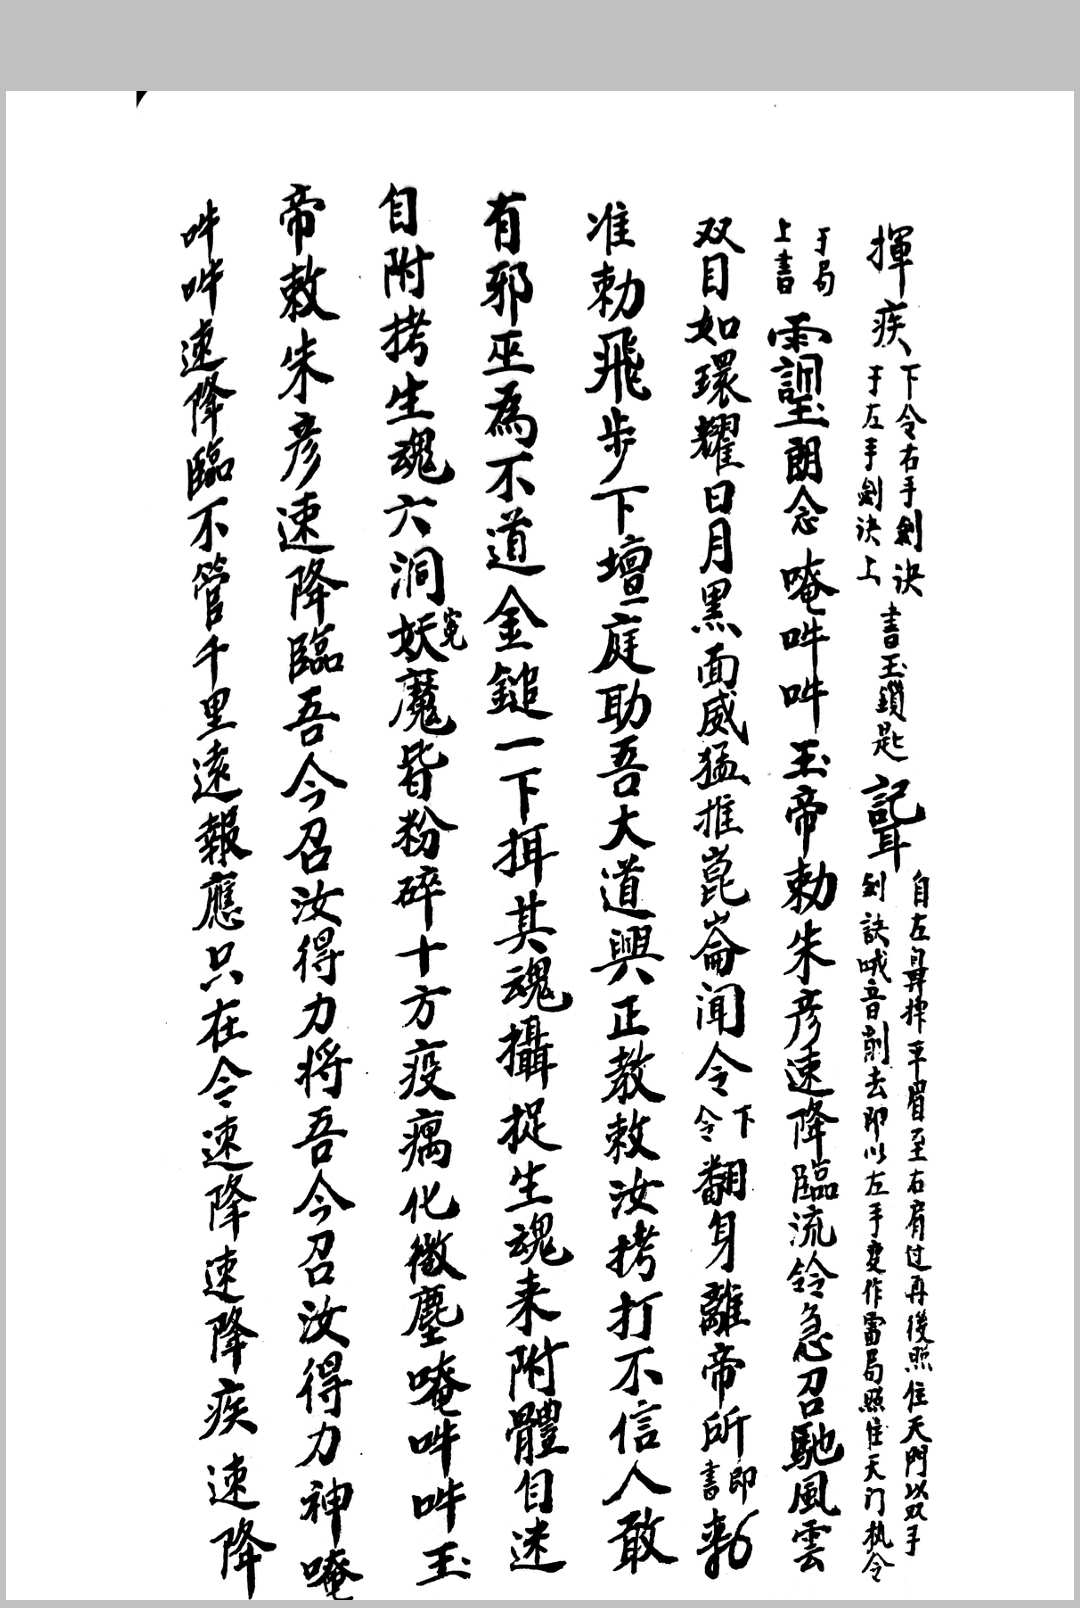 揮疾下令右手劍诀于左手劍诀上書玉鎖匙自左鼻
平眉至右肩过再後照住天門以双手剑訣音剔去即以左手变作雷局照住天门执令
于局上書朗念唵吽吽玉帝勅朱彦速降臨流鈴急召馳風雲
双目如環耀日月黑面威猛推崑崙闻令下令翻身離帝所即書
准勅飛步下壇庭助吾大道興正教敕汝拷打不信人敢
有邪巫為不道金鎚一下挕其魂攝捉生魂来附體自迷
自附拷生魂六洞妖魔皆粉碎十方疫癘化微塵唵吽吽玉
帝敕朱彦速降臨吾今召汝得力将吾今召汝得力神唵
吽吽速降臨不管千里遠報應只在令速降速降疾速降